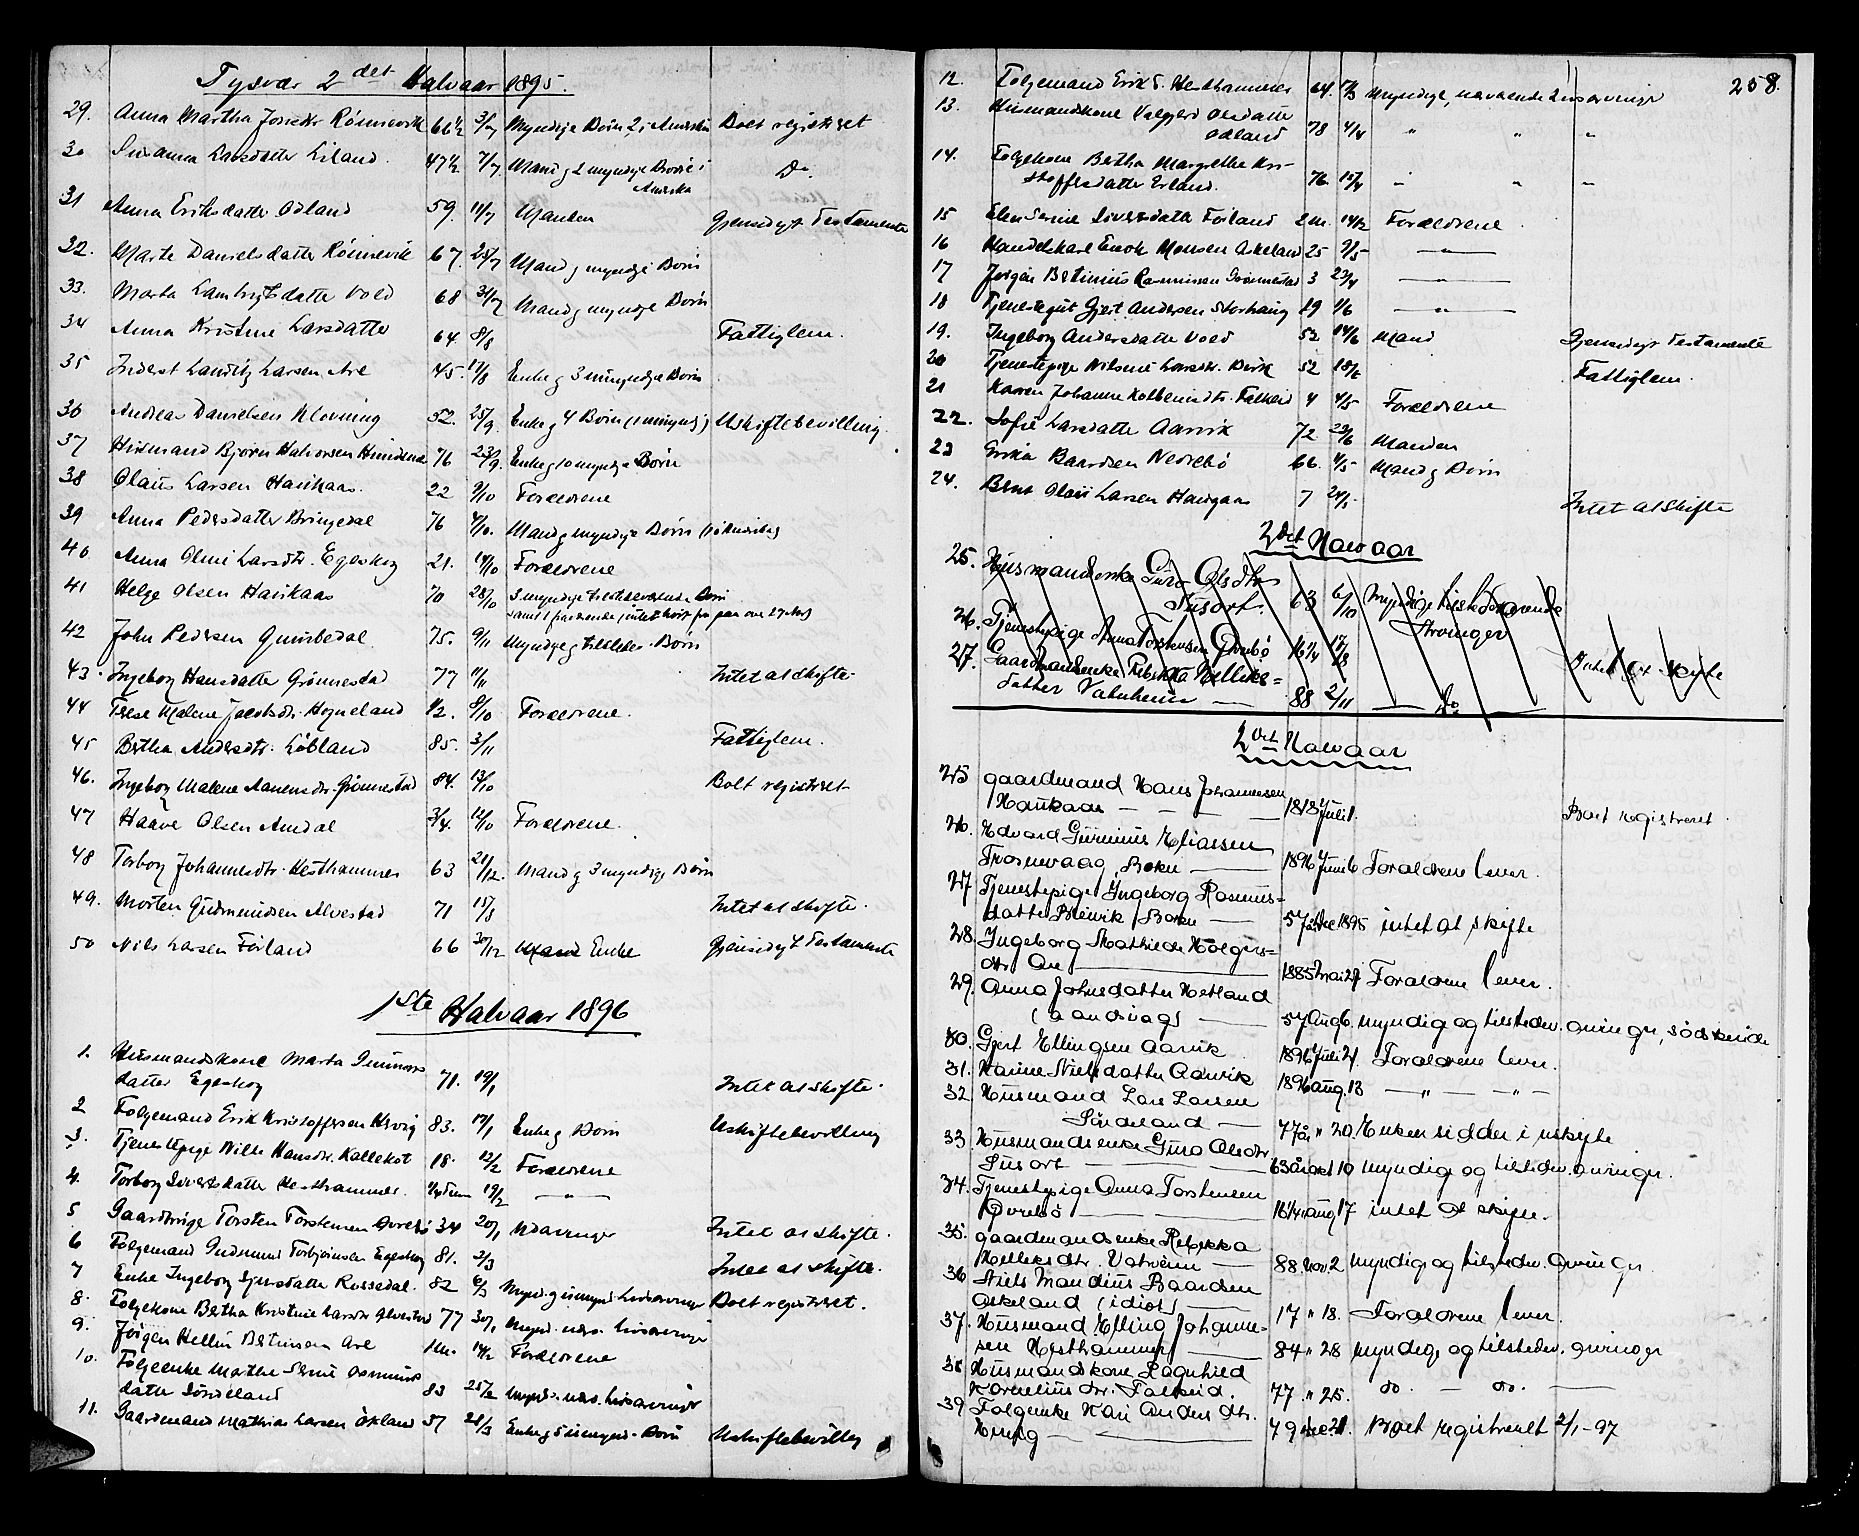 Tysvær 2det Halvaar 1895.
29. Anna Martha Josedtr Rönnevik 66½ 3/7 Myndige Börn, 2 i Amerika Boet registreret
30 Susanna Larsdatter Liland. 47½ 7/7 Mand & 2 myndige Börn i Do
Amerika
31 Anna Eriksdatter Odland 59. 11/7 Manden Gjensidigt Testamente
32. Marte Danielsdatter Rönnevik 67. 25/7 Mand & myndige Börn
33. Marta Lambrigtsdatter Vold 68 31/7 Mand & myndige Börn
34 Anna Kristine Larsdatter 64 8/8 Fattiglem.
35 Larsen Are 45. 17/8 Enke & 3 umyndige Börn
36 Andreas Danielsen Klovning 52. 25/9. Enke & 4 Börn (1 umyndig) Uskiftebevilling.
37 Husmand Björn Halvorsen 76 23/9. Enke & 10 myndige Börn
38 Olaus Larsen Haukaas. 22 9/10 Forældrene
39 Anna Pedersdatter Bringedal 76 4/10. Mand & myndige Börn (1 i Amerika)
40 Anna Oline Larsdtr. Egeskog 21. 14/10 Forældrene
41 Helge Olsen Haukaas 70 28/10 3 myndige tilstedeværende Börn
samt 1 fraværende intet hört fra paa over 27 Aar)
42 John Pedersen Gumbedal 75. 9/11 Myndige & tilstedev. Börn
43. Ingeborg Hansdatter Grönnestad 77 11/11 Intet at skifte.
44 Terese Malene Jacobsdtr. Hogneland 1/2. 8/10 Forældrene.
45 Bertha Andersdtr. Löbland 85. 3/11 Fattiglem.
46. Ingeborg Malene Aanensdtr. Grönnestad 84. 13/10 Boet registreret
47 Haave Olsen Amdal 3/4. 12/10 Forældrene.
48 Torborg Johannesdtr. Hesthammer 63 21/12. Mand & 3 myndige Börn
49. Morten Gudmundsen Alvestad 71 15/8 Intet at skifte.
50 Nils Larsen Förland 66 20/12 Enke Gjensidigt Testamente
1ste Halvaar 1896
1. Husmandskone Marta Gunnars
datter Egeskog 71. 19/1 Intet at skifte.
2 Folgemand Erik Kristoffersen Hervig 83. 17/1 Enke & Börn Uskiftebevilling
3. Tjenestepige Nille Hansdtr. Kallekot 18. 12/2 Forældrene
4. Torborg Sivertsdatter Hesthammer. 19/2 — " —
5 Gaardbruger Torsten Torstensen 34 20/1 Udarvinger Intet at skifte.
6 Folgemand Gudmund Torbjörnsen Egeskog 81. 2/3 Intet at skifte.
7 Enke Ingeborg Sjursdatter Rossedal. 82 6/3 Myndige & umynd. Livsarvinger Boet registreret.
8. Folgekone Bertha Kristine Larsdtr Alvestad 77 30/1 Mynd. nærv. Livsarvinger
9. Jörgen Hellin Bertinsen Are 1m. 14/2 Forældrene
10. Folgeenke Marthe Serine Asmunds
datter Sördeland 83 25/2 Mynd. nærv. Livsarvinger
11. Gaardmand Mathias Larsen Ökland 37 28/3 Enke & 5 umynd. Börn Uskiftebevilling
258.
12. Folgemand Erik T. Hesthammer 64. 17/3 Myndige, nærværende Livsarvinger
13. Husmandskone Valgjerd Olsdatter
Odland 78 4/4 " " "
14. Folgekone Bertha Margrethe Kri-
stoffersdatter Erland. 76 15/4 " " "
15 Elen Serine Siversdatter Förland 2m. 14/2 Forældrene
16 Handelskarl Enok Monsen Askeland 25 9/5 — " —
17 Jörgen Bertinius Rasmussen Grönnestad 3 23/4 — " —
18 Tjenestegut Gjert Andersen Storhaug 19 1/6 — " —
19. Ingeborg Andersdatter Vold 52 14/6 Mand Gjensidigt Testamente
20 Tjenestepige Nilsine Larsdtr. 52 18/6 Fattiglem.
21 Karen Johanne Kolbeinsdtr. Falkeid 4 4/5 Forældrene
22. Sofie Larsdatter Aarvik 72 23/6 Manden
23 Erika Baardsen Nedrebö 66. 4/5 Mand & Börn
24. Bent Olai Larsen Haugaas 7 24/5 Intet at skifte
2det Halvaar
25. Husmandsenke Guro Olsdtr
Susort. 63 6/10 Myndige tilstedeværende
Arvinger
26. Tjenestepige Anna Torstensen 16¼ 17/8 Intet at skifte
27. Gaardmandsenke Rebekka Helleks-
datter Vatnheim — 88 2/11 — do —
2det Halvaar
25 gaardmand Hans Johannesen
Haukaas — — 1818 Juli 1. Boet registreret.
26. Edvard Gurinius Eliassen
Trosnavaag, Bokn — 1896 Juni 6 Forældrene lever.
27 Tjenestepige Ingeborg Rasmus-
datter Breivik, Bokn — 57 år Dec 1895 intet at skifte
28. Ingeborg Mathilde Holgers-
dtr Are — 1885 Mai 27 Forældrene lever.
29. Anna Johnsdatter Hetland
(aandsvag) — 57 Aug 6. myndige og tilstedev. arvinger, södskende
30. Gjert Ellingsen Aarvik 1896 Juli 21. Forældrene lever.
31. Hanne Nielsdatter Aarvik 1896 aug. 13 — " — — " —
32 Husmand Lars Larsen
Sördeland — 77 år " 20. Enken sidder i uskifte
33. Husmandsenke Guro Olsdtr.
Susort — — 63 år oct 10 myndige og tilstedev. arvinger.
34. Tjenestepige Anna Torstensen
— — 16¼ aug 17 intet at skifte.
35. gaardmandsenke Rebekka
Helleksdtr. Vatneim — 88. nov. 2 myndige og tilstedev. arvinger.
36 Niels Mandius Baardsen
Askeland (idiot) — 17 " 18. Forældrene lever.
37. Husmand Elling Johanne-
sen Hesthammer — 84 " 28 myndige og tilstedev. arvinger
38 Husmandskone Ragnhild
Korneliusdtr. Falkeid. 77 " 25. do. — do. —
39 Folgeenke Kari Andersdtr.
Hervig — — 79 dec. 21. Boet registreret 2/1-97